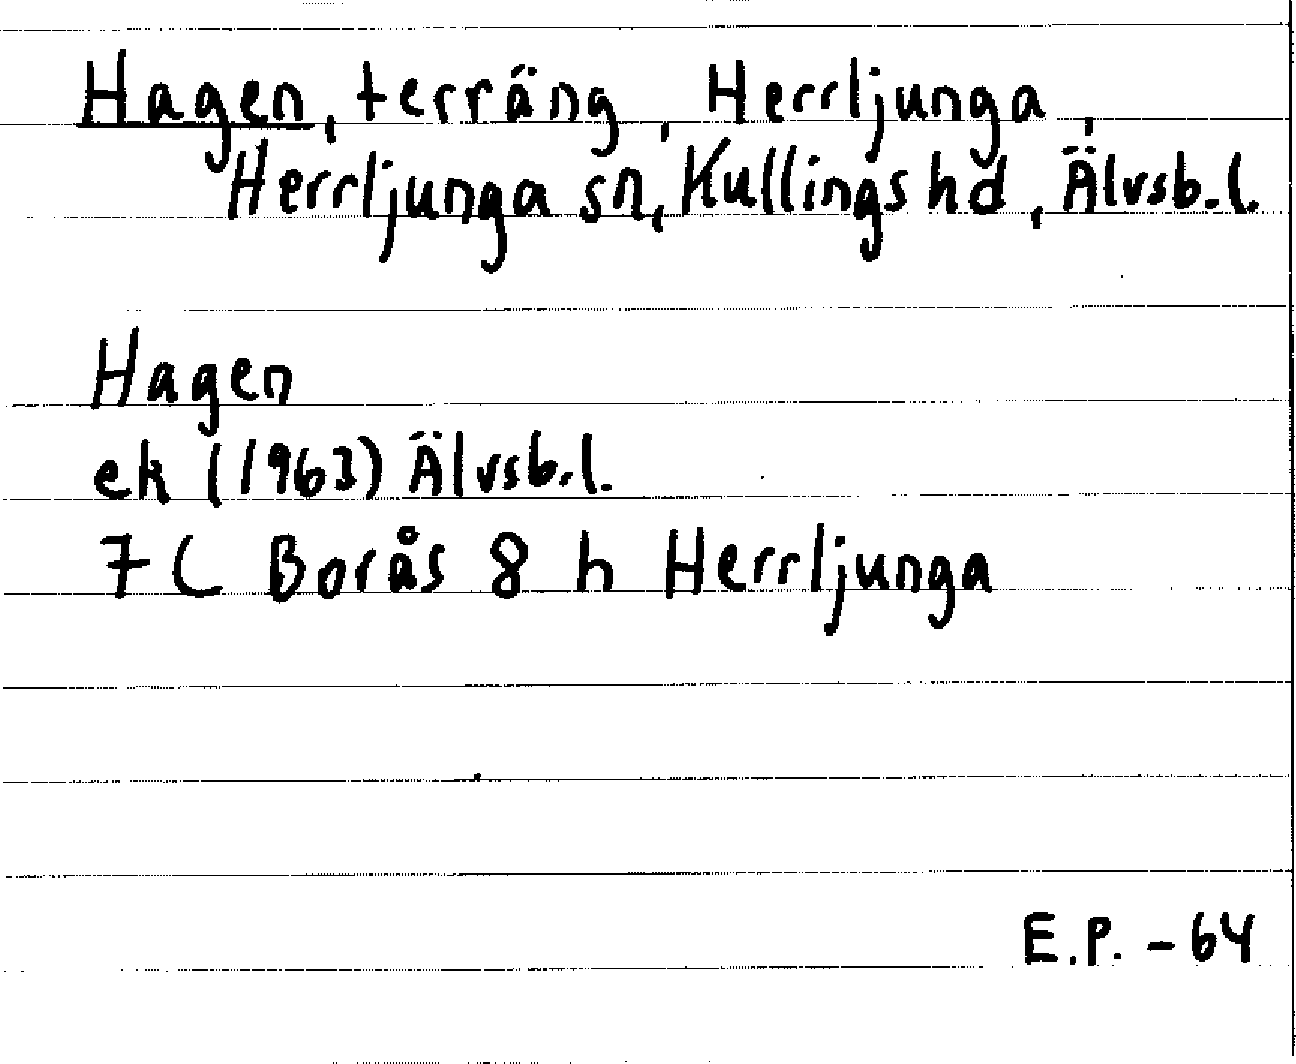 Hagen, terräng, Herrljunga,
Herrljunga sn, Kullings hd, Älvsb.l.
Hagen
ek (1963) Älvsb.l.
7 C Borås 8 h Herrljunga
E.P. - 64